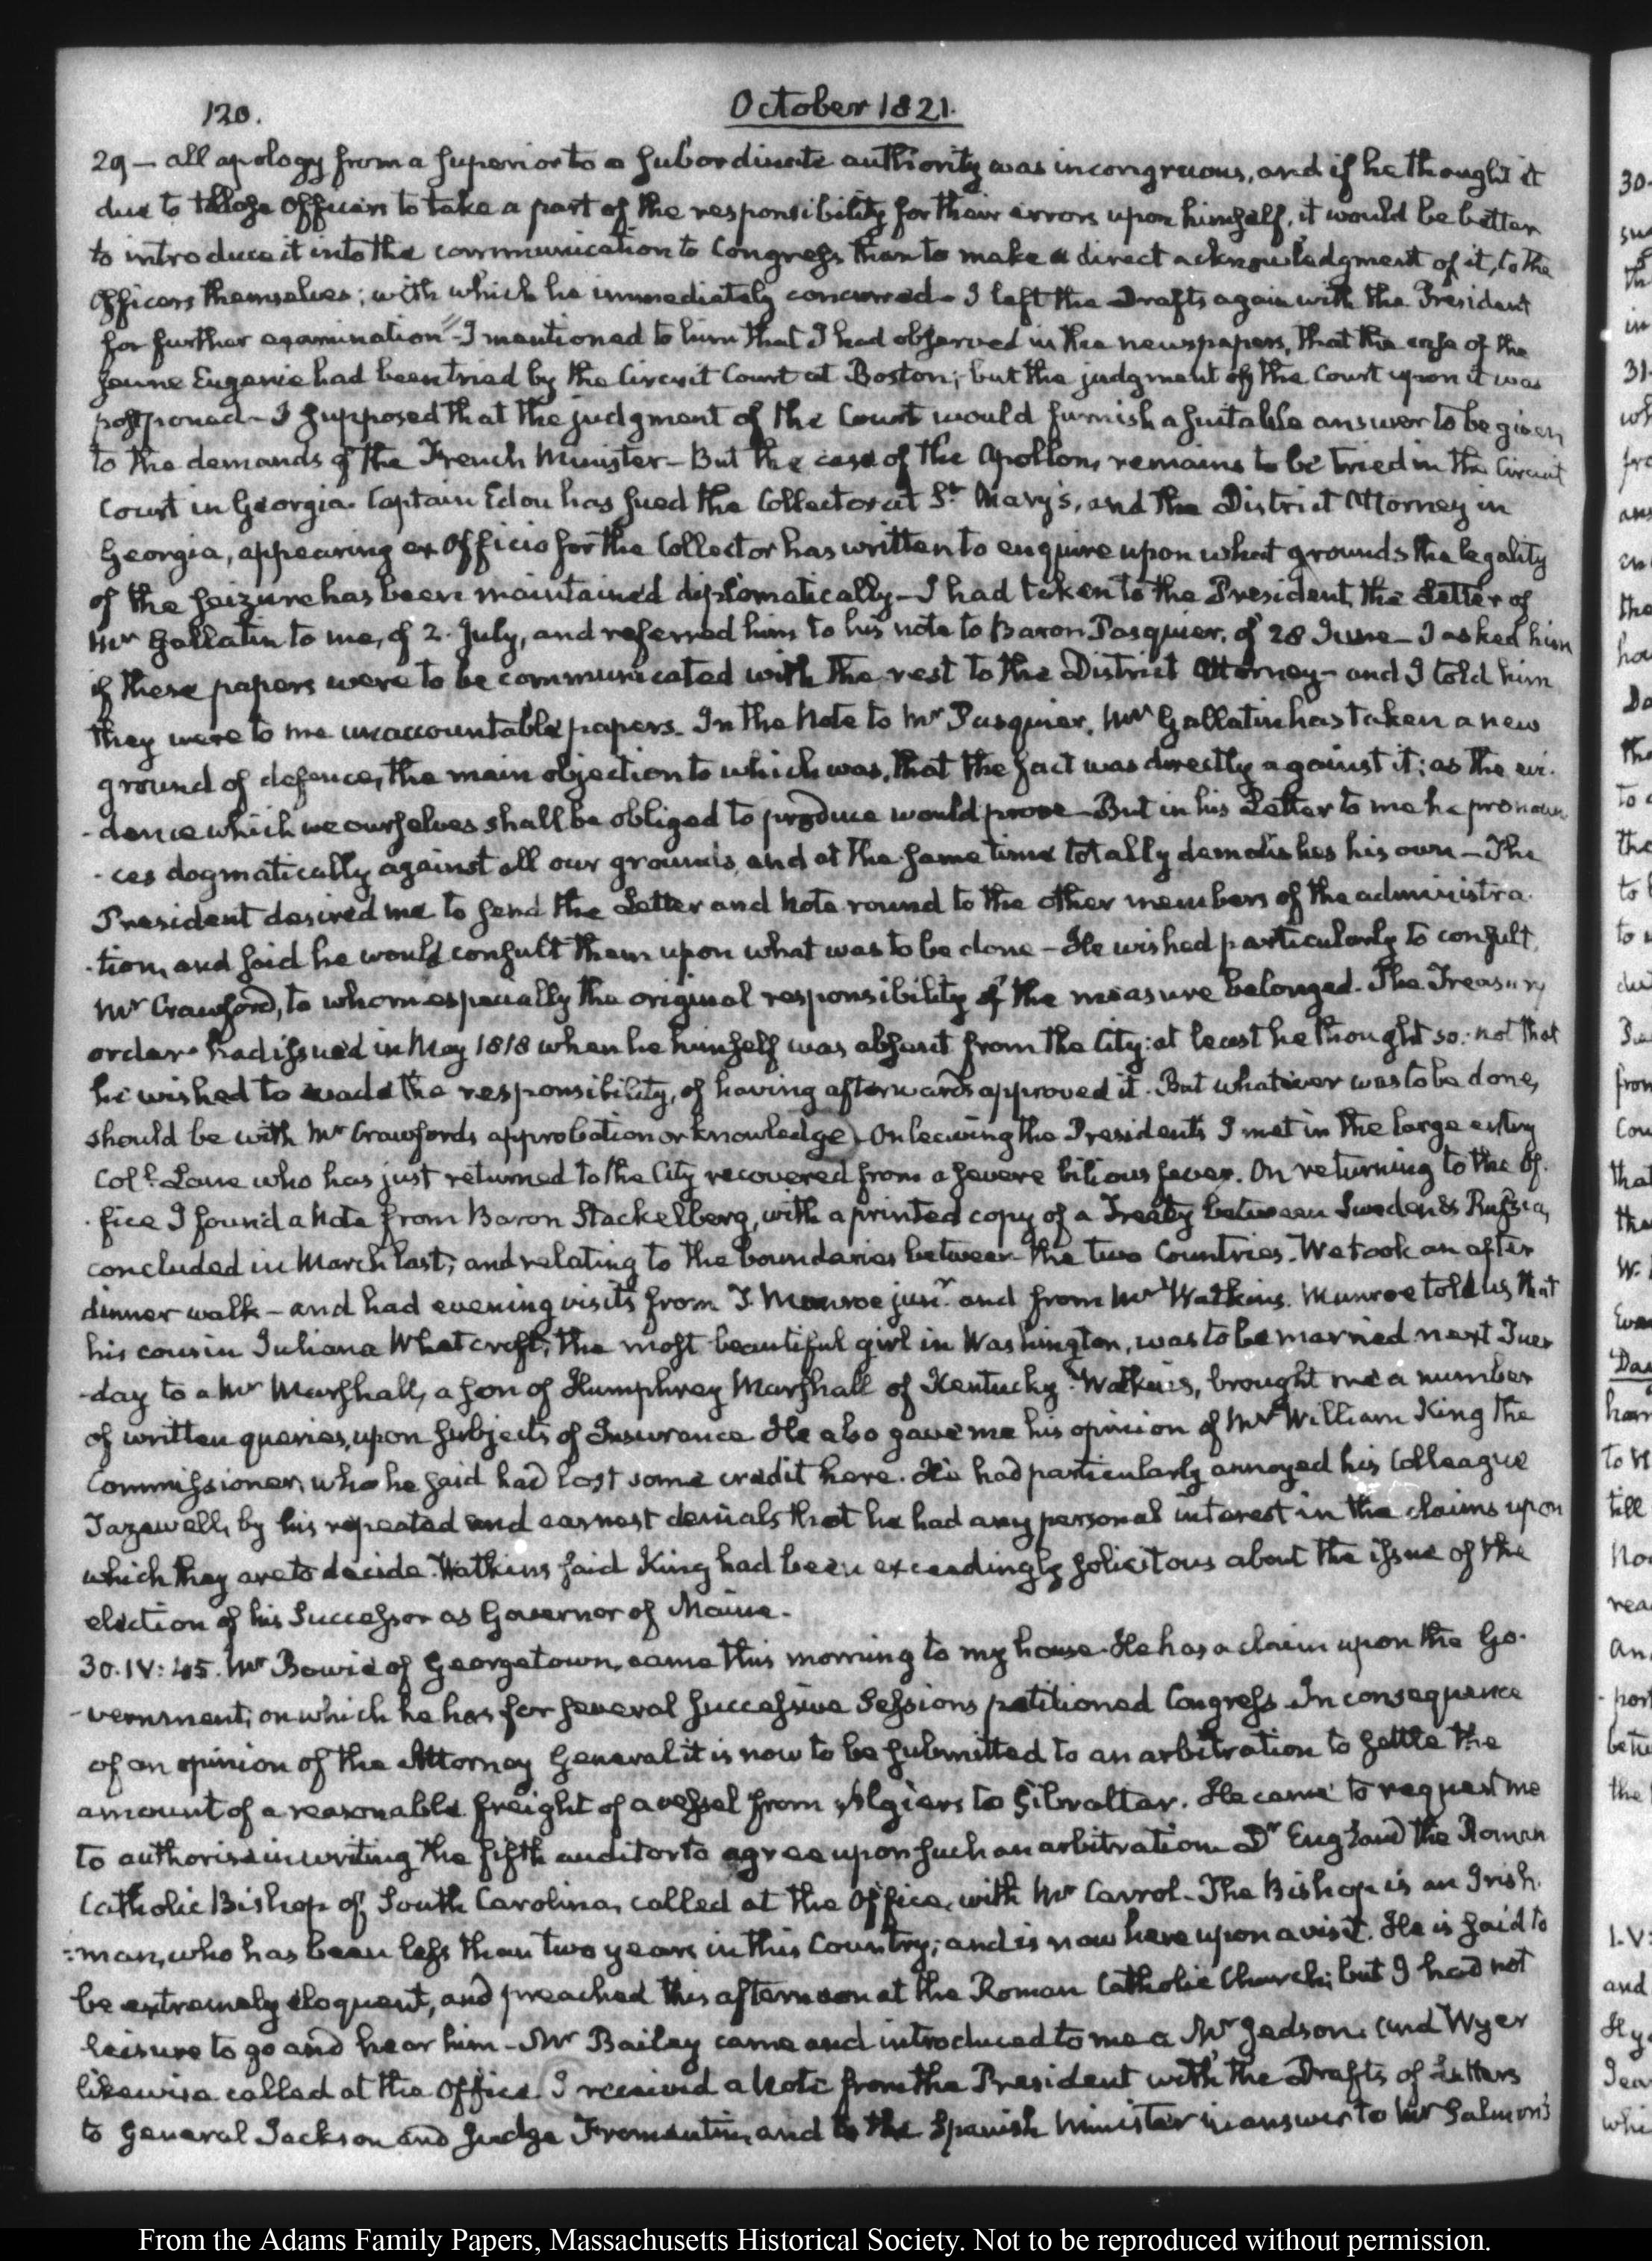 120.
October 1821.
29 — all apology from a superior to a subordinate authority was incongruous, and if he thought it
due to those Officers to take a part of the responsibility for their errors upon himself, it would be better
to introduce it into the communication to Congress than to make a direct acknowledgment of it, to the
Officers themselves; with which he immediately concurred — I left the Drafts again with the President
for further examination — I mentioned to him that I had observed in the newspapers, that the case of the
Jeune Eugenie had been tried by the Circuit Court at Boston; but the judgment of the Court upon it was
postponed — I supposed that the judgment of the Court would furnish a suitable answer to be given
to the demands of the French Minister — But the case of the Apollon, remains to be tried in the Circuit
Court in Georgia. Captain Edou has sued the Collector at St. Mary's, and the District Attorney in
Georgia, appearing ex Officio for the Collector has written to enquire upon what grounds the legality
of the seizure has been maintained diplomatically — I had taken to the President, the Letter of
Mr Gallatin to me, of 2. July, and referred him to his note to Baron Pasquier, of 28 June — I asked him
if these papers were to be communicated with the rest to the District Attorney — and I told him
they were to me unaccountable papers. In the Note to Mr Pasquier, Mr Gallatin has taken a new
ground of defence, the main objection to which was, that the fact was directly against it; as the evi-
-dence which we ourselves shall be obliged to produce would prove — But in his Letter to me he pronoun
-ces dogmatically against all our grounds, and at the same time totally demolishes his own — The
President desired me to send the Letter and Note round to the other members of the administra-
-tion, and said he would consult them upon what was to be done — He wished particularly to consult
Mr Crawford, to whom especially the original responsibility of the measure belonged. The Treasury
order had issued in May 1818 when he himself was absent from the City: at least he thought so: not that
he wished to evade the responsibility, of having afterwards approved it. But whatever was to be done,
should be with Mr Crawfords approbation or knowledge) On leaving the Presidents I met in the large entry
Coll. Lane who has just returned to the City recovered from a severe bilious fever. On returning to the Of-
-fice I found a Note from Baron Stackelberg, with a printed copy of a Treaty between Sweden & Russia,
concluded in March last, and relating to the boundaries between the two Countries. We took an after
dinner walk — and had evening visits from T. Munroe junr. and from Mr Watkins. Munroe told us that
his cousin Juliana Whetcroft, the most beautiful girl in Washington, was to be married next Tues
-day to a Mr Marshall, a son of Humphrey Marshall of Kentucky. Watkins, brought me a number
of written queries, upon subjects of Insurance. He also gave me his opinion of Mr William King the
Commissioner, who he said had lost some credit here. He had particularly annoyed his Colleague
Tazewell, by his repeated and earnest denials that he had any personal interest in the claims upon
which they are to decide. Watkins said King had been exceedingly solicitous about the issue of the
election of his Successor as Governor of Maine.
30. IV: 45. Mr Bowie of Georgetown, came this morning to my house. He has a claim upon the Go-
-vernment, on which he has for several successive Sessions petitioned Congress. In consequence
of an opinion of the Attorney General it is now to be submitted to an arbitration to settle the
amount of a reasonable freight of a vessel from Algiers to Gibraltar. He came to request me
to authorise in writing the fifth auditor to agree upon such an arbitration. Dr England the Roman
Catholic Bishop of South Carolina, called at the Office, with Mr Carrol — The Bishop is an Irish-
-man, who has been less than two years in this Country, and is now here upon a visit. He is said to
be extremely eloquent, and preached this afternoon at the Roman Catholic Church; but I had not
leisure to go and hear him — Mr Bailey came and introduced to me a Mr Jadson. (and Wyer
likewise called at the Office (I received a Note from the President with the Drafts of Letters
to General Jackson and Judge Fromentin, and to the Spanish Minister in answer to Mr Salmon's
From the Adams Family Papers, Massachusetts Historical Society. Not to be reproduced without permission.